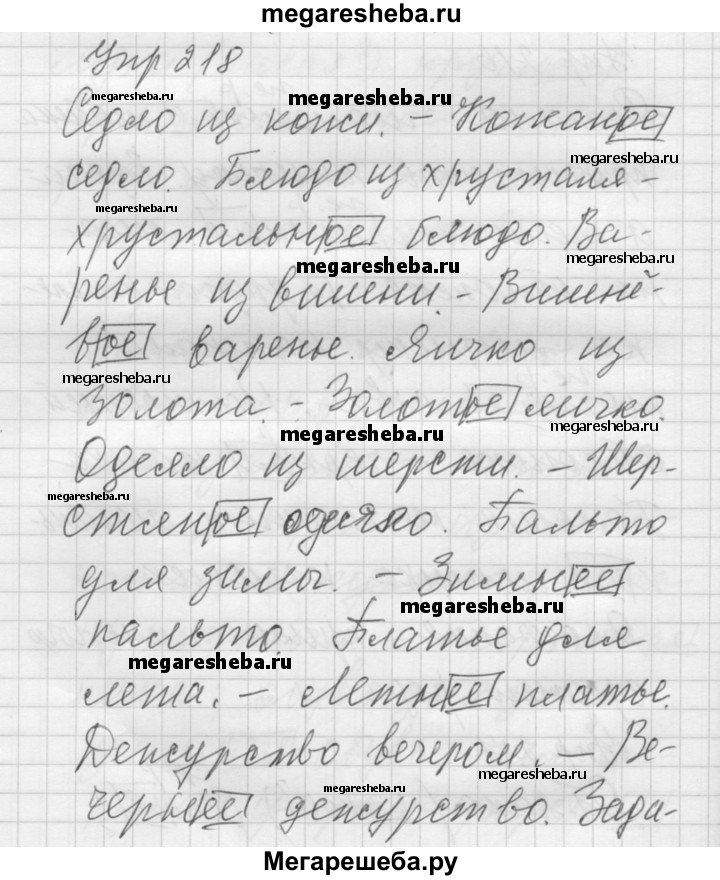 megaresheba.ru
Упр 218
megaresheba.ru
megaresheba.ru
Седло из кожи. - Кожаное
megaresheba.ru
седло. Блюдо из хрусталя -
megaresheba.ru
хрустальное блюдо. Ва-
megaresheba.ru
megaresheba.ru
ренье из вишени. - Вишнё-
вое варенье. Яичко из
megaresheba.ru
megaresheba.ru
золота. - Золотое яичко.
megaresheba.ru
megaresheba.ru
Одеяло из шерсти. - Шер-
megaresheba.ru
megaresheba.ru
стяное одеяло. Пальто
для зимы. - Зимнее
megaresheba.ru
пальто. Платье для
megaresheba.ru
лета. - Летнее платье.
megaresheba.ru
Дежурство вечером. - Ве-
megaresheba.ru
megaresheba.ru
чернее дежурство. Зада-
Мегарешеба.ру